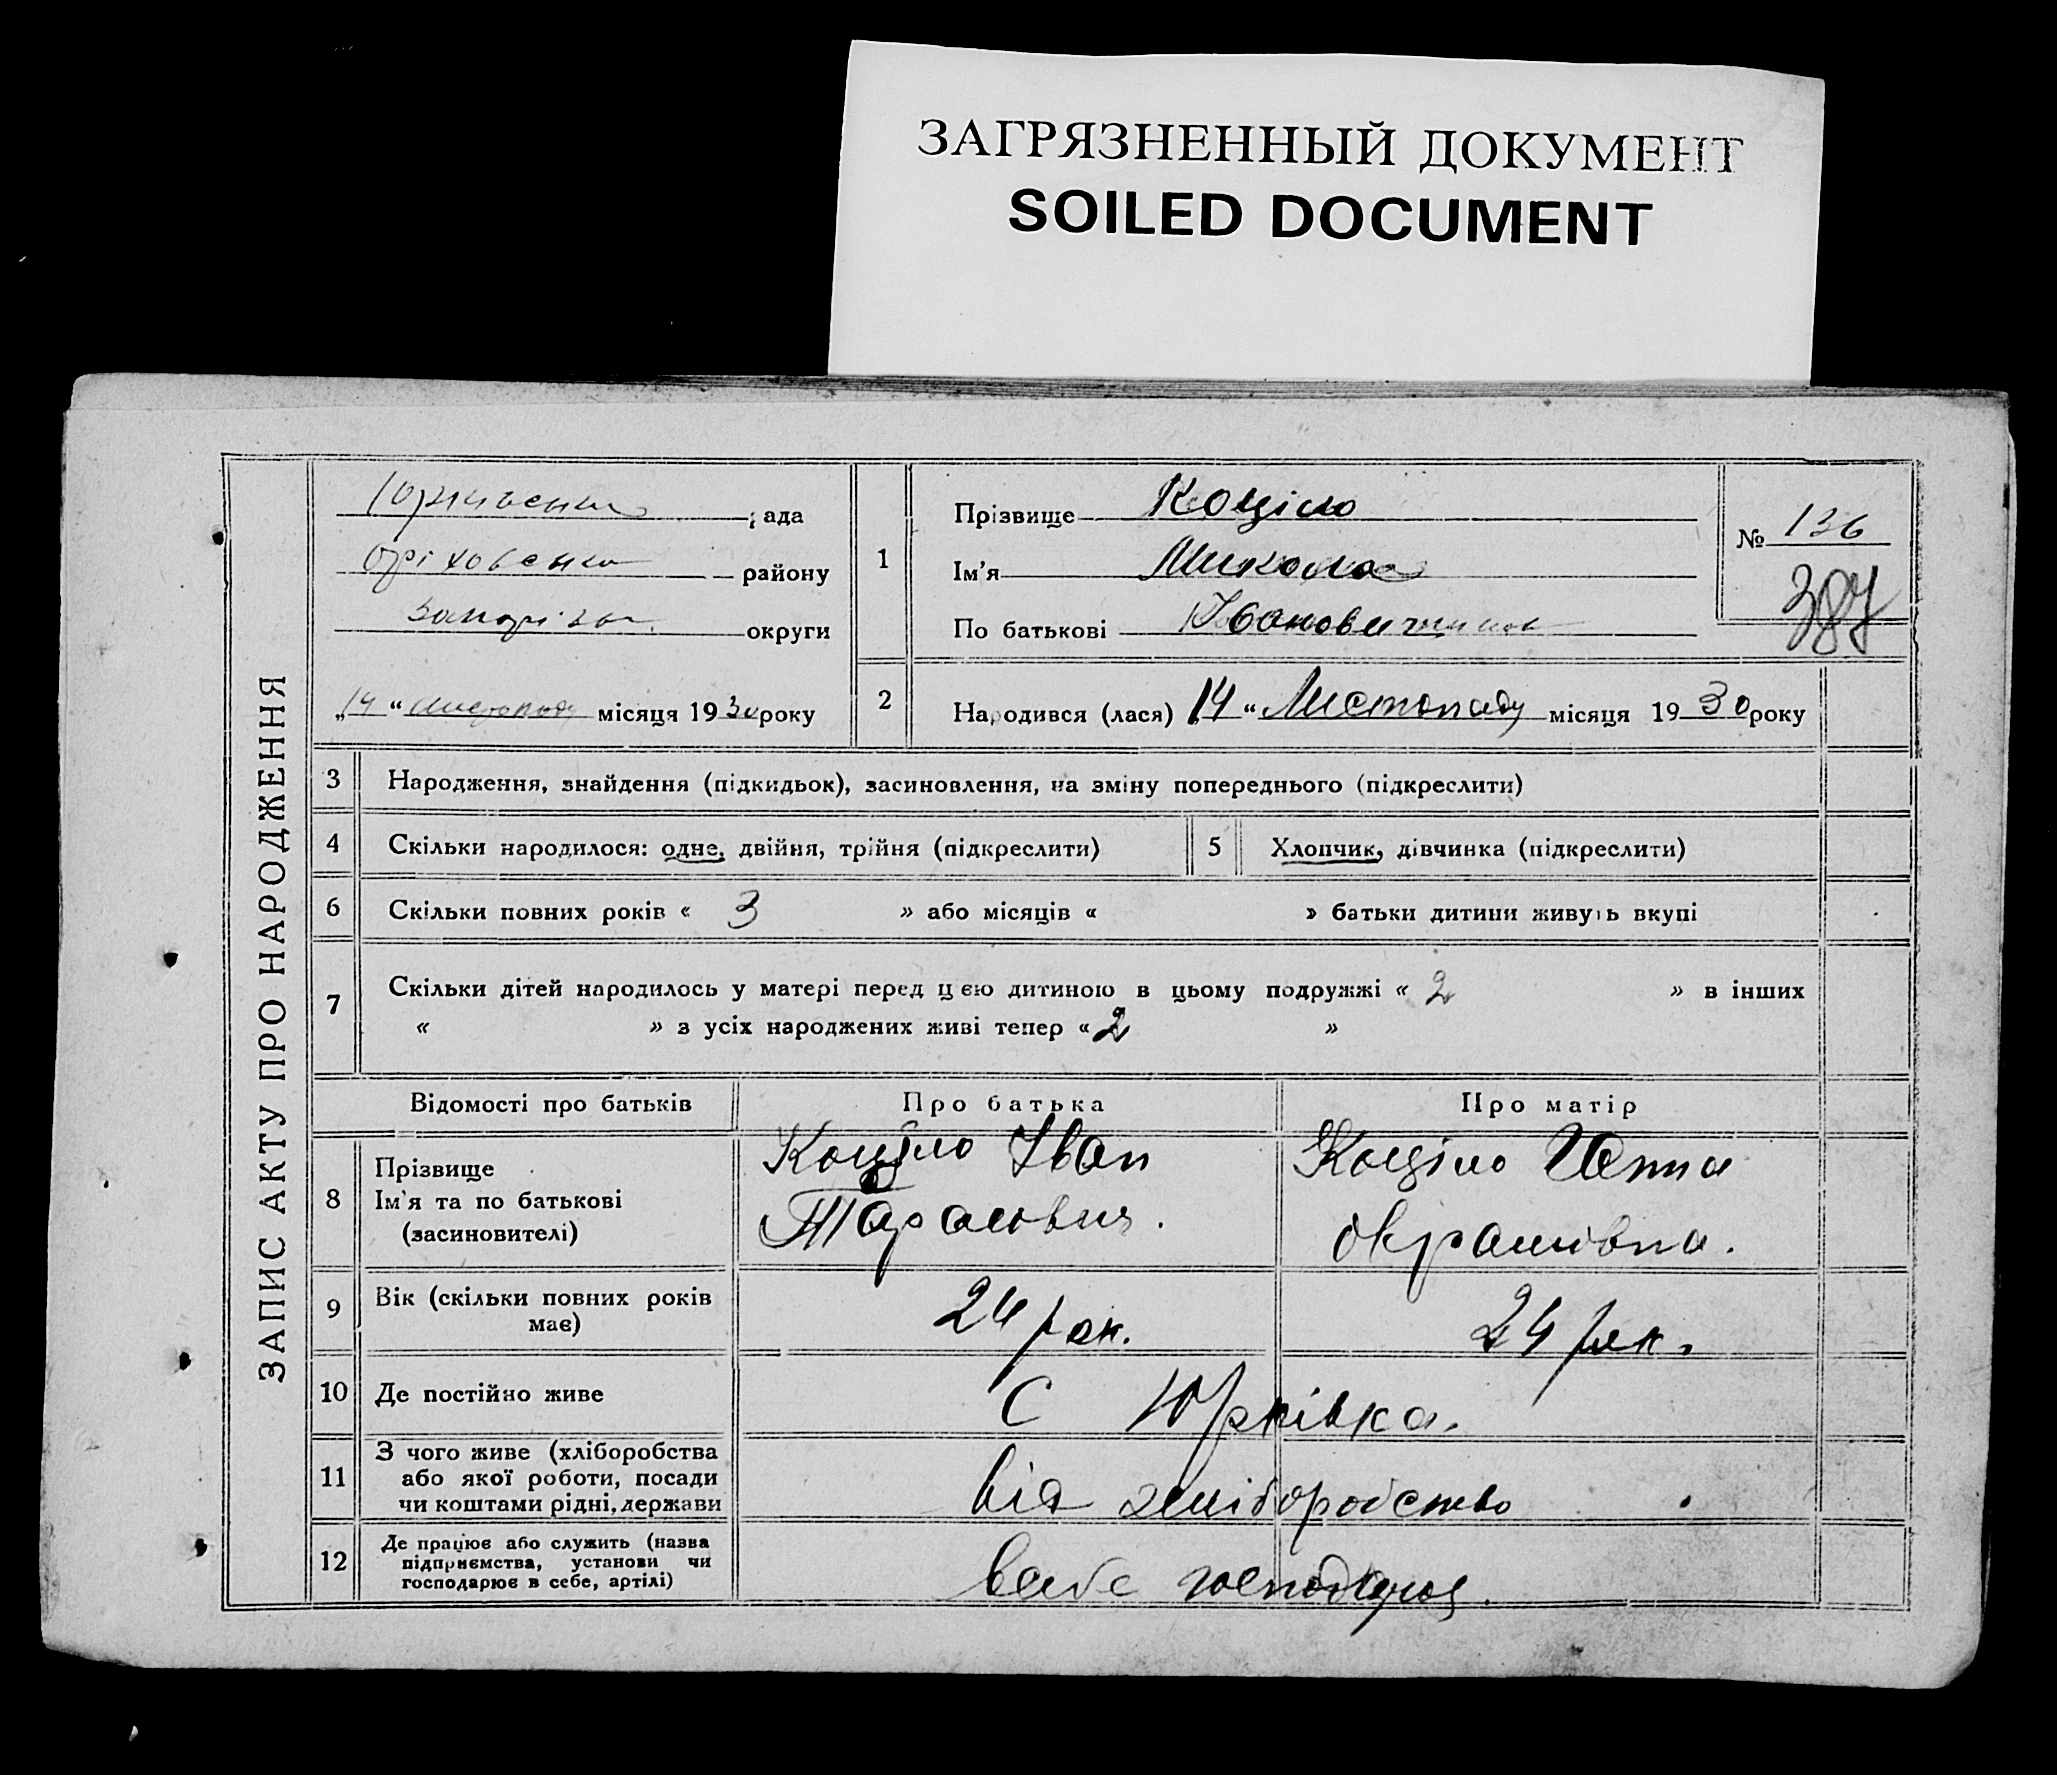 ЗАГРЯЗНЕННЫЙ ДОКУМЕНТ
SOILED DOCUMENT
ЗАПИС АКТУ ПРО НАРОДЖЕННЯ
рада
Оріховська району
Запорізьк. округи
„14“ листопаду місяця 1930 року
1 Прізвище Коціло
Ім'я Микола
По батькові Іванович
№ 136
387
2 Народився (лася) „14“ Листопаду місяця 1930 року
3 Народження, знайдення (підкидьок), засиновлення, на зміну попереднього (підкреслити)
4 Скільки народилося: одне, двійня, трійня (підкреслити)
5 Хлопчик, дівчинка (підкреслити)
6 Скільки повних років « 3 » або місяців « » батьки дитини живуть вкупі
7 Скільки дітей народилось у матері перед цєю дитиною в цьому подружжі « 2 » в інших
« » з усіх народжених живі тепер « 2 »
Відомості про батьків Про батька Про матір
8 Прізвище
Ім'я та по батькові
(засиновителі)
Коціло Іван
Тарасович.
Коціло Ганна
9 Вік (скільки повних років
має)
24 рок.
24 рок.
10 Де постійно живе
С Юрківка.
11 З чого живе (хліборобства
або якої роботи, посади
чи коштами рідні, держави
від хліборобство
12 Де працює або служить (назва
підприємства, установи чи
господарює в себе, артілі)
в себе господарює.